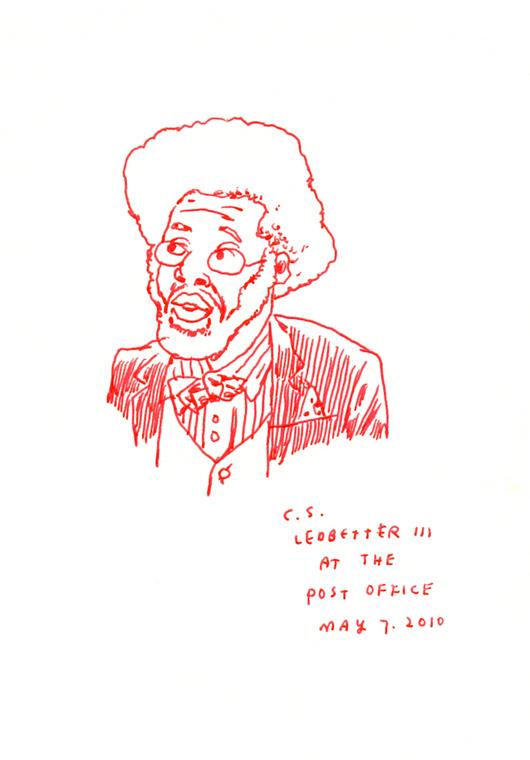 C.S.
LEDBETTER III
AT THE
POST OFFICE
MAY 7. 2010